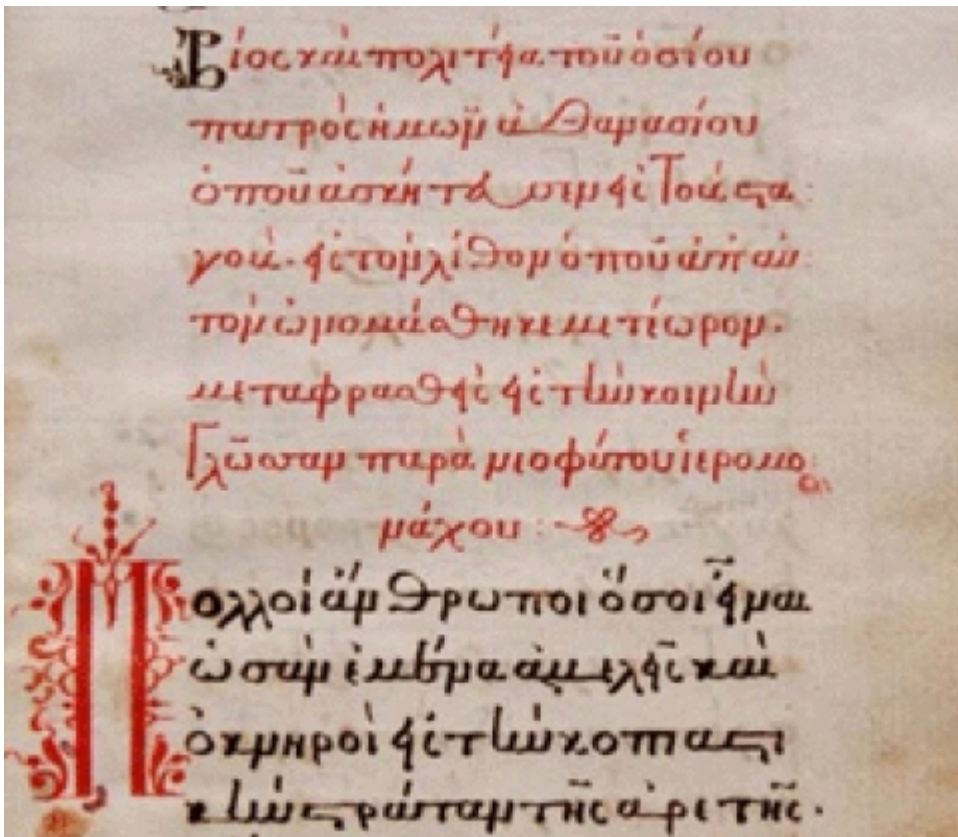 Βίος καὶ πολιτεία τοῦ ὁσίου
πατρὸς ἡμῶν ἀθανασίου
ὁποῦ ἀσκήτευσεν εἰς Τοὺς στα
γοὺς. εἰς τὸν λίθον ὁποῦ αὐ
τὸν ὠνομάσθηκε μετέωρον.
μεταφρασθεὶς εἰς τὴν κοινὴν
Γλῶσσαν παρὰ νεοφύτου ἱερομο
νάχου:
Πολλοὶ ἄνθρωποι ὅσοι εἶναι
ὡσὰν ἐμένα ἀμελεῖς καὶ
ὀκνηροὶ εἰς τὴν κοπιαστι
κὴν στράταν τῆς ἀρετῆς.